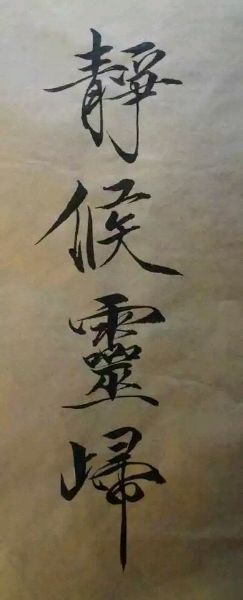 靜候靈歸